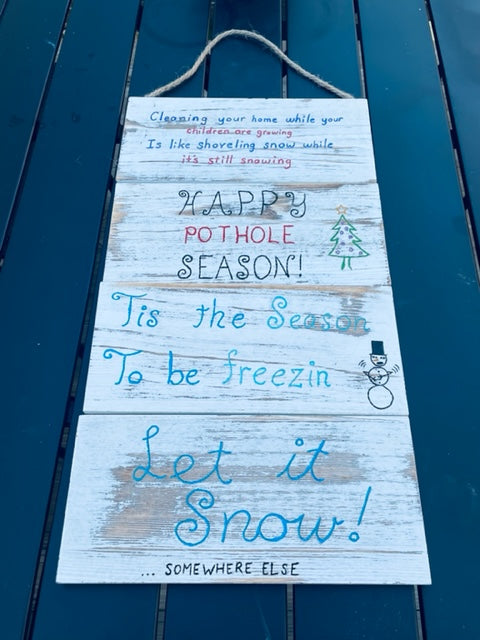 Cleaning your home while your
children are growing
Is like shoveling snow while
it's still snowing
HAPPY
POTHOLE
SEASON!
Tis the Season
To be freezin
Let it
Snow!
... SOMEWHERE ELSE